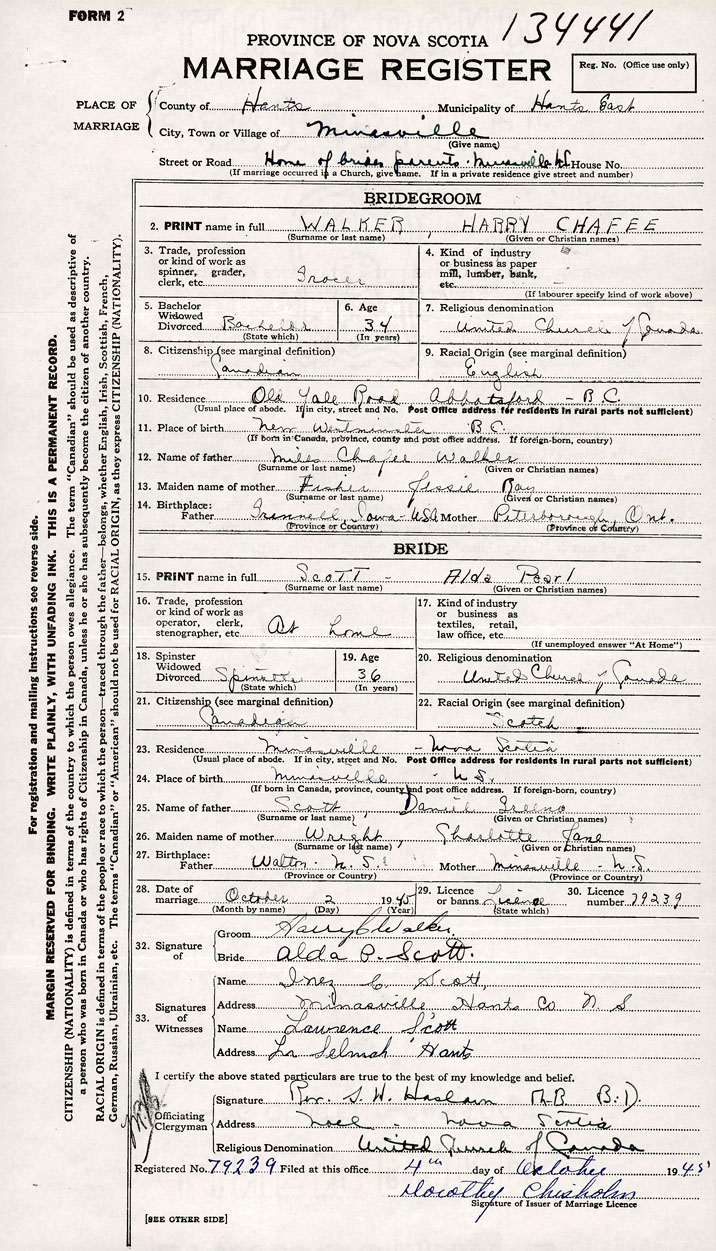 FORM 2
134441
PROVINCE OF NOVA SCOTIA
MARRIAGE REGISTER
Reg. No. (Office use only)
PLACE OF MARRIAGE
County of Hants Municipality of Hants East
City, Town or Village of Minasville
(Give name)
Street or Road Home of brides parents. Minasville N.S. House No.
(If marriage occurred in a Church, give name. If in a private residence give street and number)
BRIDEGROOM
2. PRINT name in full WALKER, HARRY CHAFEE
(Surname or last name) (Given or Christian names)
3. Trade, profession or kind of work as spinner, grader, clerk, etc. Grocer
4. Kind of industry or business as paper mill, lumber, bank, etc.
(If labourer specify kind of work above)
5. Bachelor Widowed Divorced Bachelor
(State which)
6. Age 34
(In years)
7. Religious denomination United Church of Canada
8. Citizenship (see marginal definition) Canadian
9. Racial Origin (see marginal definition) English
10. Residence Old Yale Road Abbotsford - B.C.
(Usual place of abode. If in city, street and No. Post Office address for residents in rural parts not sufficient)
11. Place of birth New Westminster B.C.
(If born in Canada, province, county and post office address. If foreign-born, country)
12. Name of father Miles Chafee Walker
(Surname or last name) (Given or Christian names)
13. Maiden name of mother Fisher Jessie Ray
(Surname or last name) (Given or Christian names)
14. Birthplace: Father Grinnell, Iowa - USA Mother Peterborough, Ont.
(Province or Country) (Province or Country)
BRIDE
15. PRINT name in full SCOTT - Alda Pearl
(Surname or last name) (Given or Christian names)
16. Trade, profession or kind of work as operator, clerk, stenographer, etc. At home
17. Kind of industry or business as textiles, retail, law office, etc.
(If unemployed answer "At Home")
18. Spinster Widowed Divorced Spinster
(State which)
19. Age 36
(In years)
20. Religious denomination United Church of Canada
21. Citizenship (see marginal definition) Canadian
22. Racial Origin (see marginal definition) Scotch
23. Residence Minasville - Nova Scotia
(Usual place of abode. If in city, street and No. Post Office address for residents in rural parts not sufficient)
24. Place of birth Minasville N.S.
(If born in Canada, province, county and post office address. If foreign-born, country)
25. Name of father Scott, Daniel Greeno
(Surname or last name) (Given or Christian names)
26. Maiden name of mother Wright, Charlotte Jane
(Surname or last name) (Given or Christian names)
27. Birthplace: Father Walton - N.S. Mother Minasville - N.S.
(Province or Country) (Province or Country)
28. Date of marriage October 2 1945
(Month by name) (Day) (Year)
29. Licence or banns License
(State which)
30. Licence number 79239
32. Signature of
Groom Harry C Walker
Bride Alda P. Scott.
33. Signatures of Witnesses
Name Inez C. Scott,
Address Minasville Hants Co N S
Name Lawrence Scott
Address Selmah Hants
I certify the above stated particulars are true to the best of my knowledge and belief.
Officiating Clergyman
Signature Rev. S. W. Haslam B.D.
Address Noel - Nova Scotia
Religious Denomination United Church of Canada
Registered No. 79239 Filed at this office 4th day of October 1945
Dorothy Chisholm
Signature of Issuer of Marriage Licence
[SEE OTHER SIDE]
For registration and mailing instructions see reverse side.
MARGIN RESERVED FOR BINDING. WRITE PLAINLY, WITH UNFADING INK. THIS IS A PERMANENT RECORD.
CITIZENSHIP (NATIONALITY) is defined in terms of the country to which the person owes allegiance. The term "Canadian" should be used as descriptive of
a person who was born in Canada or who has rights of Citizenship in Canada, unless he or she has subsequently become the citizen of another country.
RACIAL ORIGIN is defined in terms of the people or race to which the person—traced through the father—belongs, whether English, Irish, Scottish, French,
German, Russian, Ukrainian, etc. The terms "Canadian" or "American" should not be used for RACIAL ORIGIN, as they express CITIZENSHIP (NATIONALITY).